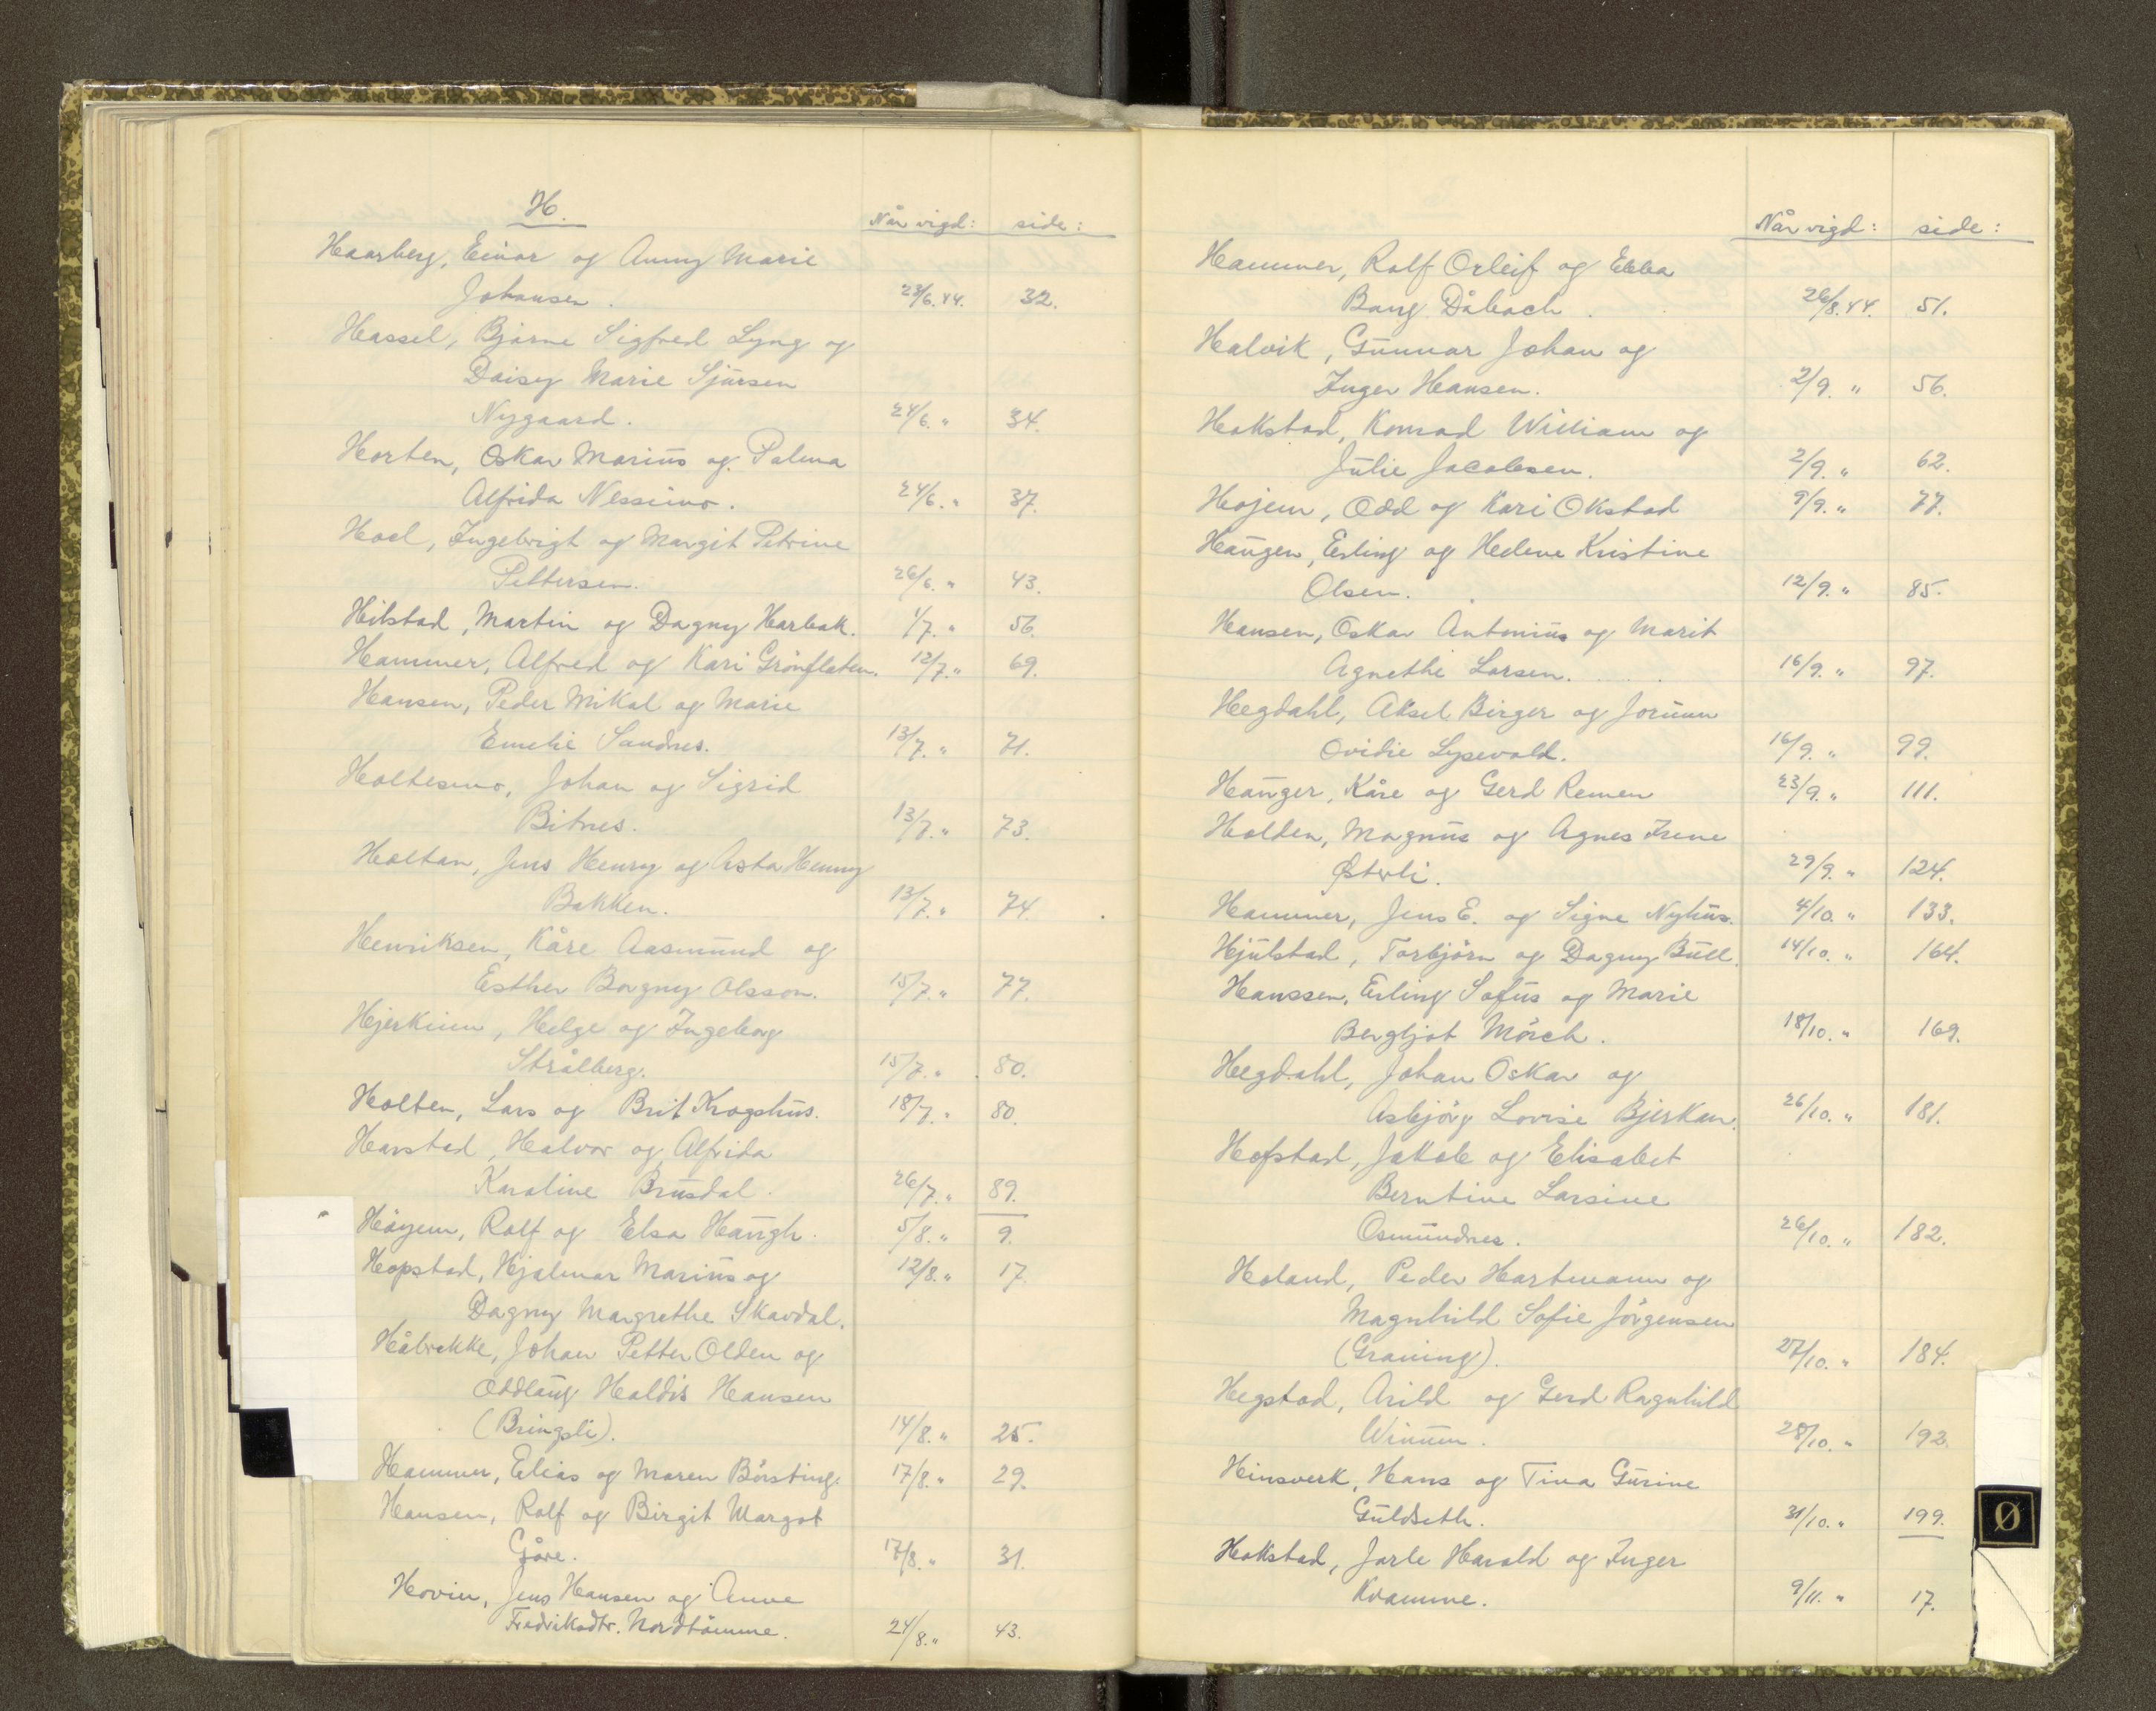 H.
Når vigd: side:
Haarberg, Einar og Anny Marie
Johansen. 23/6.44. 32.
Hassel, Bjarne Sigfred Lyng og
Daisy Marie Sjursen
Nygaard. 24/6. " 34.
Horten, Oskar Marius og Palma
Alfrida Nessimo. 24/6. " 37.
Hoel, Ingebrigt og Margit Petrine
Pettersen. 26/6. " 43.
Hilstad, Martin og Dagny Harbak. 1/7. " 56.
Hammer, Alfred og Kari Grönflaten. 12/7. " 69.
Hansen, Peder Mikal og Marie
Emelie Sandnes. 13/7. " 71.
Holtesmo, Johan og Sigrid
Bitnes. 13/7. " 73.
Holtan, Jens Henry og Asta Henny
Bakken. 13/7. " 74.
Henriksen, Kåre Aasmund og
Esther Borgny Olsson. 15/7. " 77.
Hjerkinn, Helge og Ingeborg
Strålberg. 15/7. " 80.
Holten, Lars og Brit Krogshus. 18/7. " 80.
Harstad, Halvor og Alfrida
Karoline Brusdal. 26/7. " 89.
Höyem, Rolf og Elsa Haugh. 5/8. " 9.
Hopstad, Hjalmar Marius og 12/8. " 17.
Dagny Margrethe Skavdal.
Håbrekke, Johan Petter Olden og
Oddlaug Haldis Hansen
(Bringsli). 14/8. " 25.
Hammer, Elias og Maren Börsting. 17/8. " 29.
Hansen, Rolf og Birgit Margot
Gåre. 17/8. " 31.
Hovin, Jens Hansen og Anne
Fredriksdtr. Nordtömme. 24/8. " 43.
Når vigd: side:
Hammer, Rolf Orleif og Ebba
Bang Dåbach. 26/8.44. 51.
Halvik, Gunnar Johan og
Inger Hansen. 2/9. " 56.
Hokstad, Konrad William og
Julie Jacobsen. 2/9. " 62.
Hojem, Odd og Kari Okstad 9/9. " 77.
Haugen, Erling og Helene Kristine
Olsen. 12/9. " 85.
Hansen, Oskar Antonius og Marit
Agnethe Larsen. 16/9. " 97.
Hegdahl, Aksel Birger og Jorunn
Ovidie Lysevold. 16/9. " 99.
Hauger, Kåre og Gerd Remen 23/9. " 111.
Holden, Magnus og Agnes Irene
Østerli. 29/9. " 124.
Hammer, Jens E. og Signe Nyhus. 4/10. " 133.
Hjulstad, Torbjörn og Dagny Bull. 14/10. " 164.
Hanssen, Erling Sofus og Marie
Bergljot Mörch. 18/10. " 169.
Hegdahl, Johan Oskar og
Asbjörg Lovise Bjerkan. 26/10. " 181.
Hofstad, Jakob og Elisabet
Berntine Larsine
Osmundnes. 26/10. " 182.
Holand, Peder Hartmann og
Magnhild Sofie Jörgensen
(Graning). 27/10. " 184.
Hegstad, Arild og Gerd Ragnhild
Winum. 28/10. " 192.
Hinsverk, Hans og Tina Gurine
Guldseth. 31/10. " 199.
Hokstad, Jarle Harald og Inger
Kvamme. 9/11. " 17.
Ø